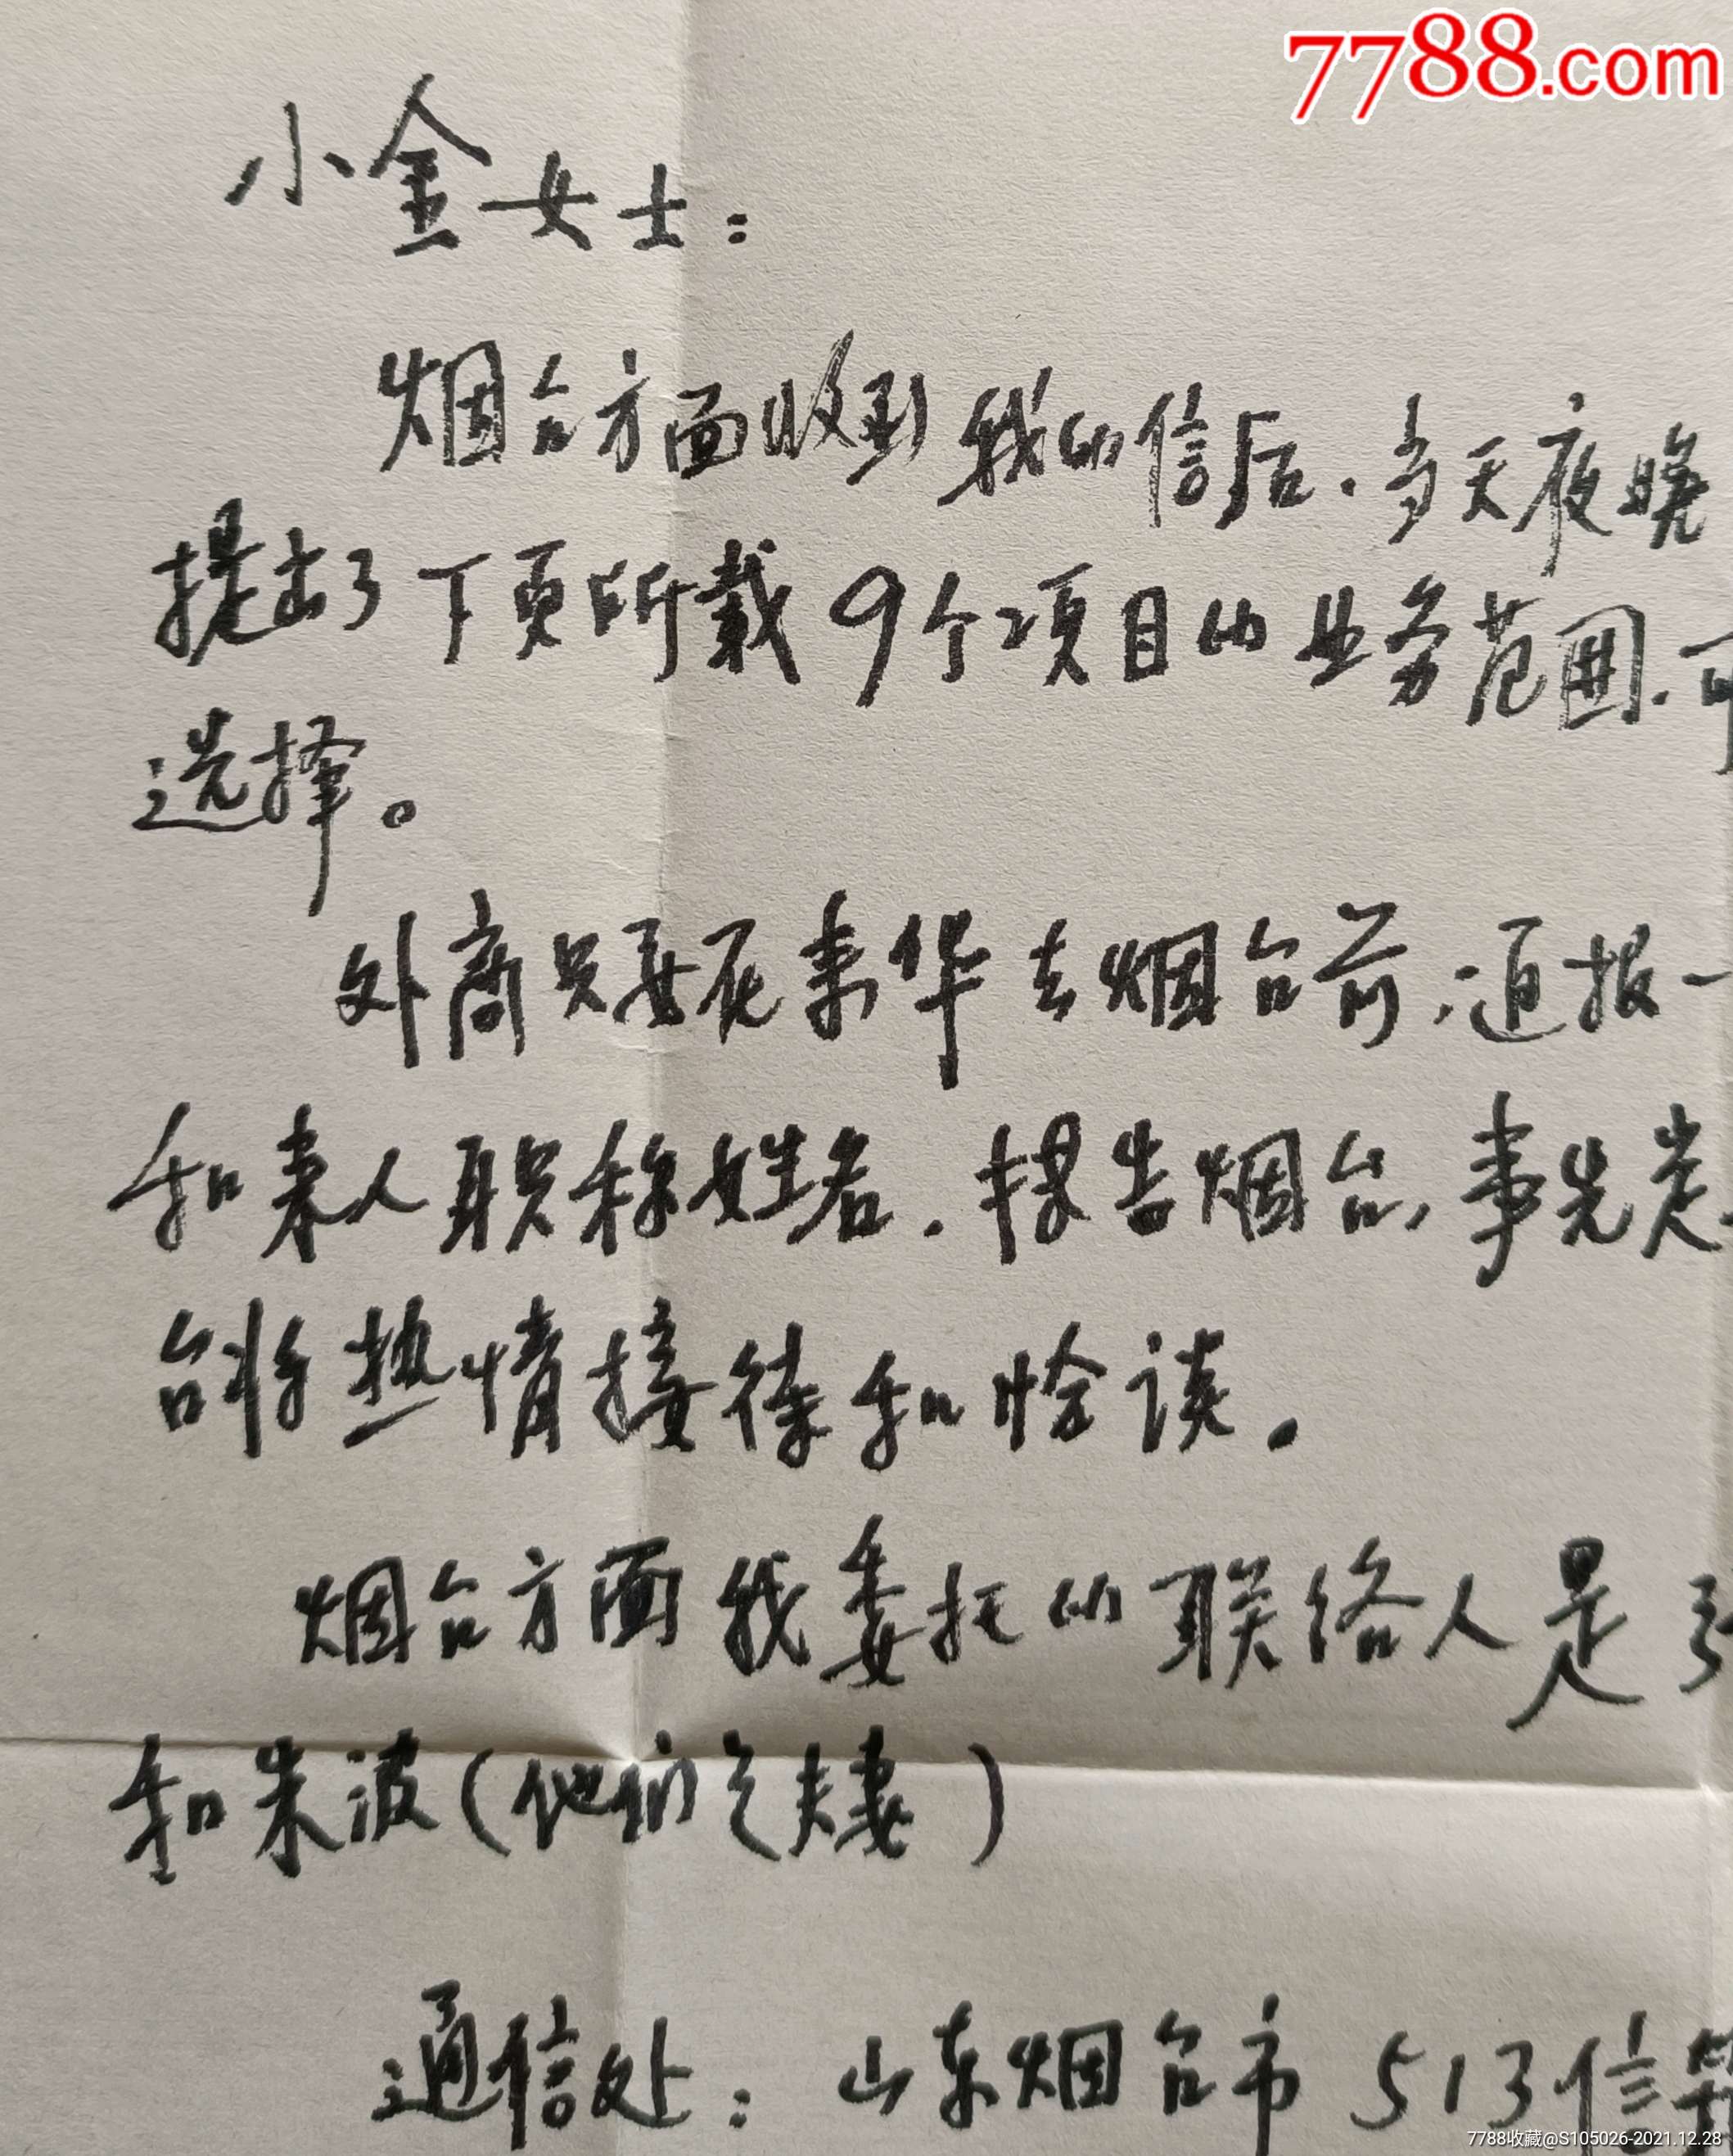 7788.com
小金女士：
烟台方面收到我的信后，当天夜晚
提出了下页所载9个项目的业务范围，可
选择。
外商只要在来华去烟台前，通报一
和来人职称姓名，报告烟台，事先老
台将热情接待和恰谈。
烟台方面我委托的联络人是
和朱波（他们是夫妻）
通信处：山东烟台市513信箱
7788收藏@S105026-2021.12.28